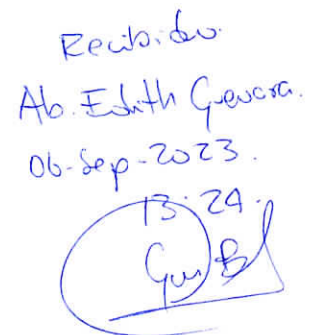 Recibido.
Ab. Edith Guevara.
06-Sep-2023.
13:24.